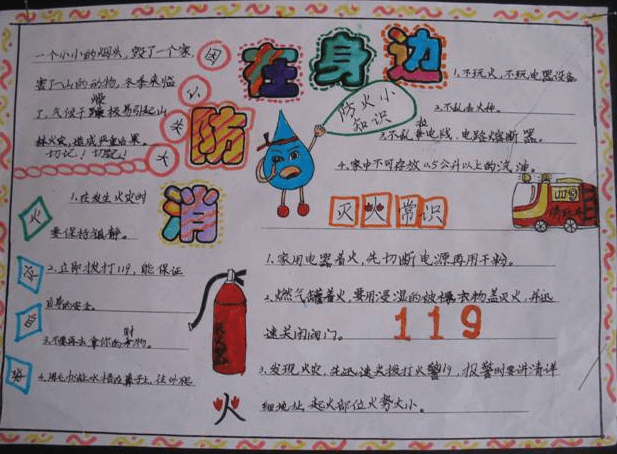 消防在身边
一个小小的烟头，毁了一个家，
害了一山的动物，冬季来临
了，气候干燥极易引起山
林火灾，造成严重后果。
切记！切记！
防火小
知识
1、不玩火，不玩电器设备
2、不乱丢火种。
3、不乱私电线、电路熔断器。
4、家中不可存放0.5公升以上的汽油。
火
1、在发生火灾时
要保持镇静。
2、立即拨打119，能保证
自身的安全。
3、不要再去拿你的财物。
灭火常识
1、家用电器着火，先切断电源再用干粉。
2、燃气罐着火，要用浸湿的被褥衣物盖灭火，并迅
速关闭阀门。
119
3、发现火灾，先迅速火拨打火警119，报警时要讲清详
细地址、起火部位火势大小。
火